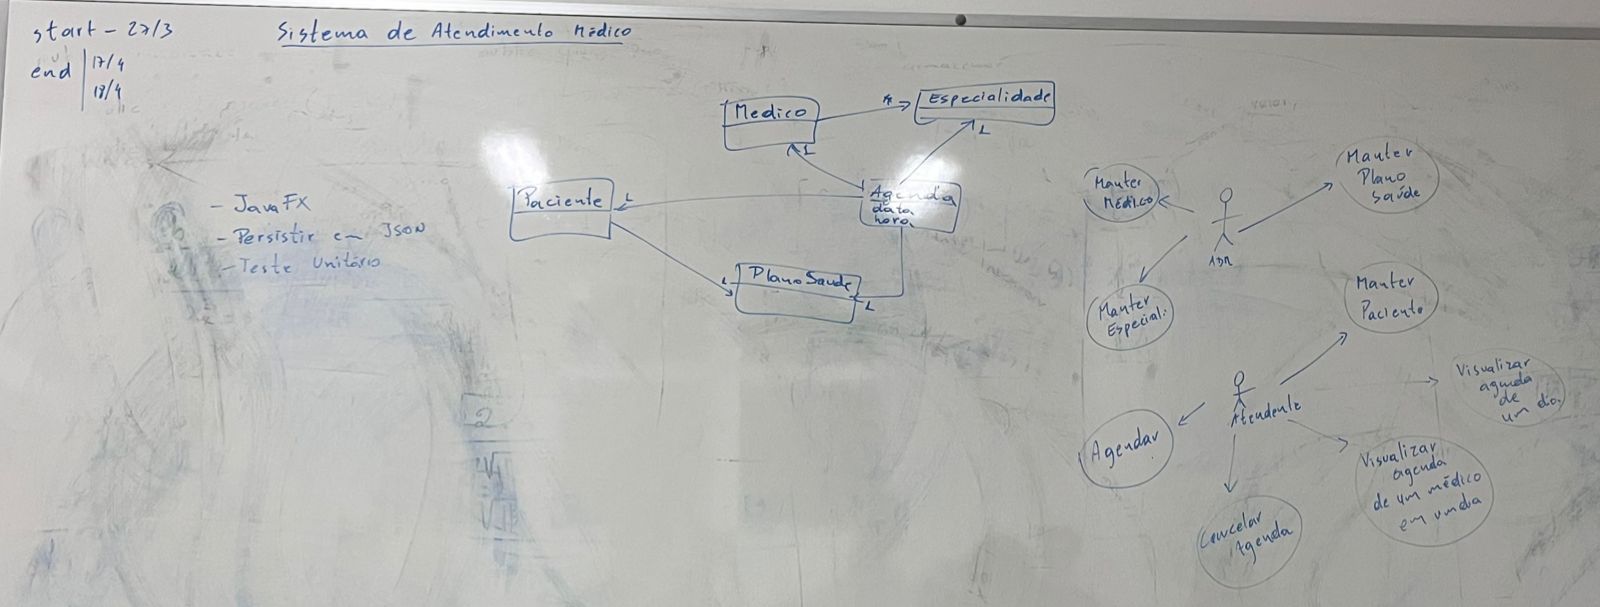 start - 27/3
Sistema de Atendimento Médico
end
17/4
18/4
- JavaFX
- Persistir em JSON
- Teste Unitário
Medico
*
Especialidade
1
1
Paciente
1
Agenda
data
hora
1
PlanoSaude
1
Manter
Médico
Manter
Plano
Saúde
ADM
Manter
Especiali.
Manter
Paciente
Atendente
Visualizar
agenda
de
um dia.
Agendar
Visualizar
agenda
de um médico
em um dia
Cancelar
Agenda